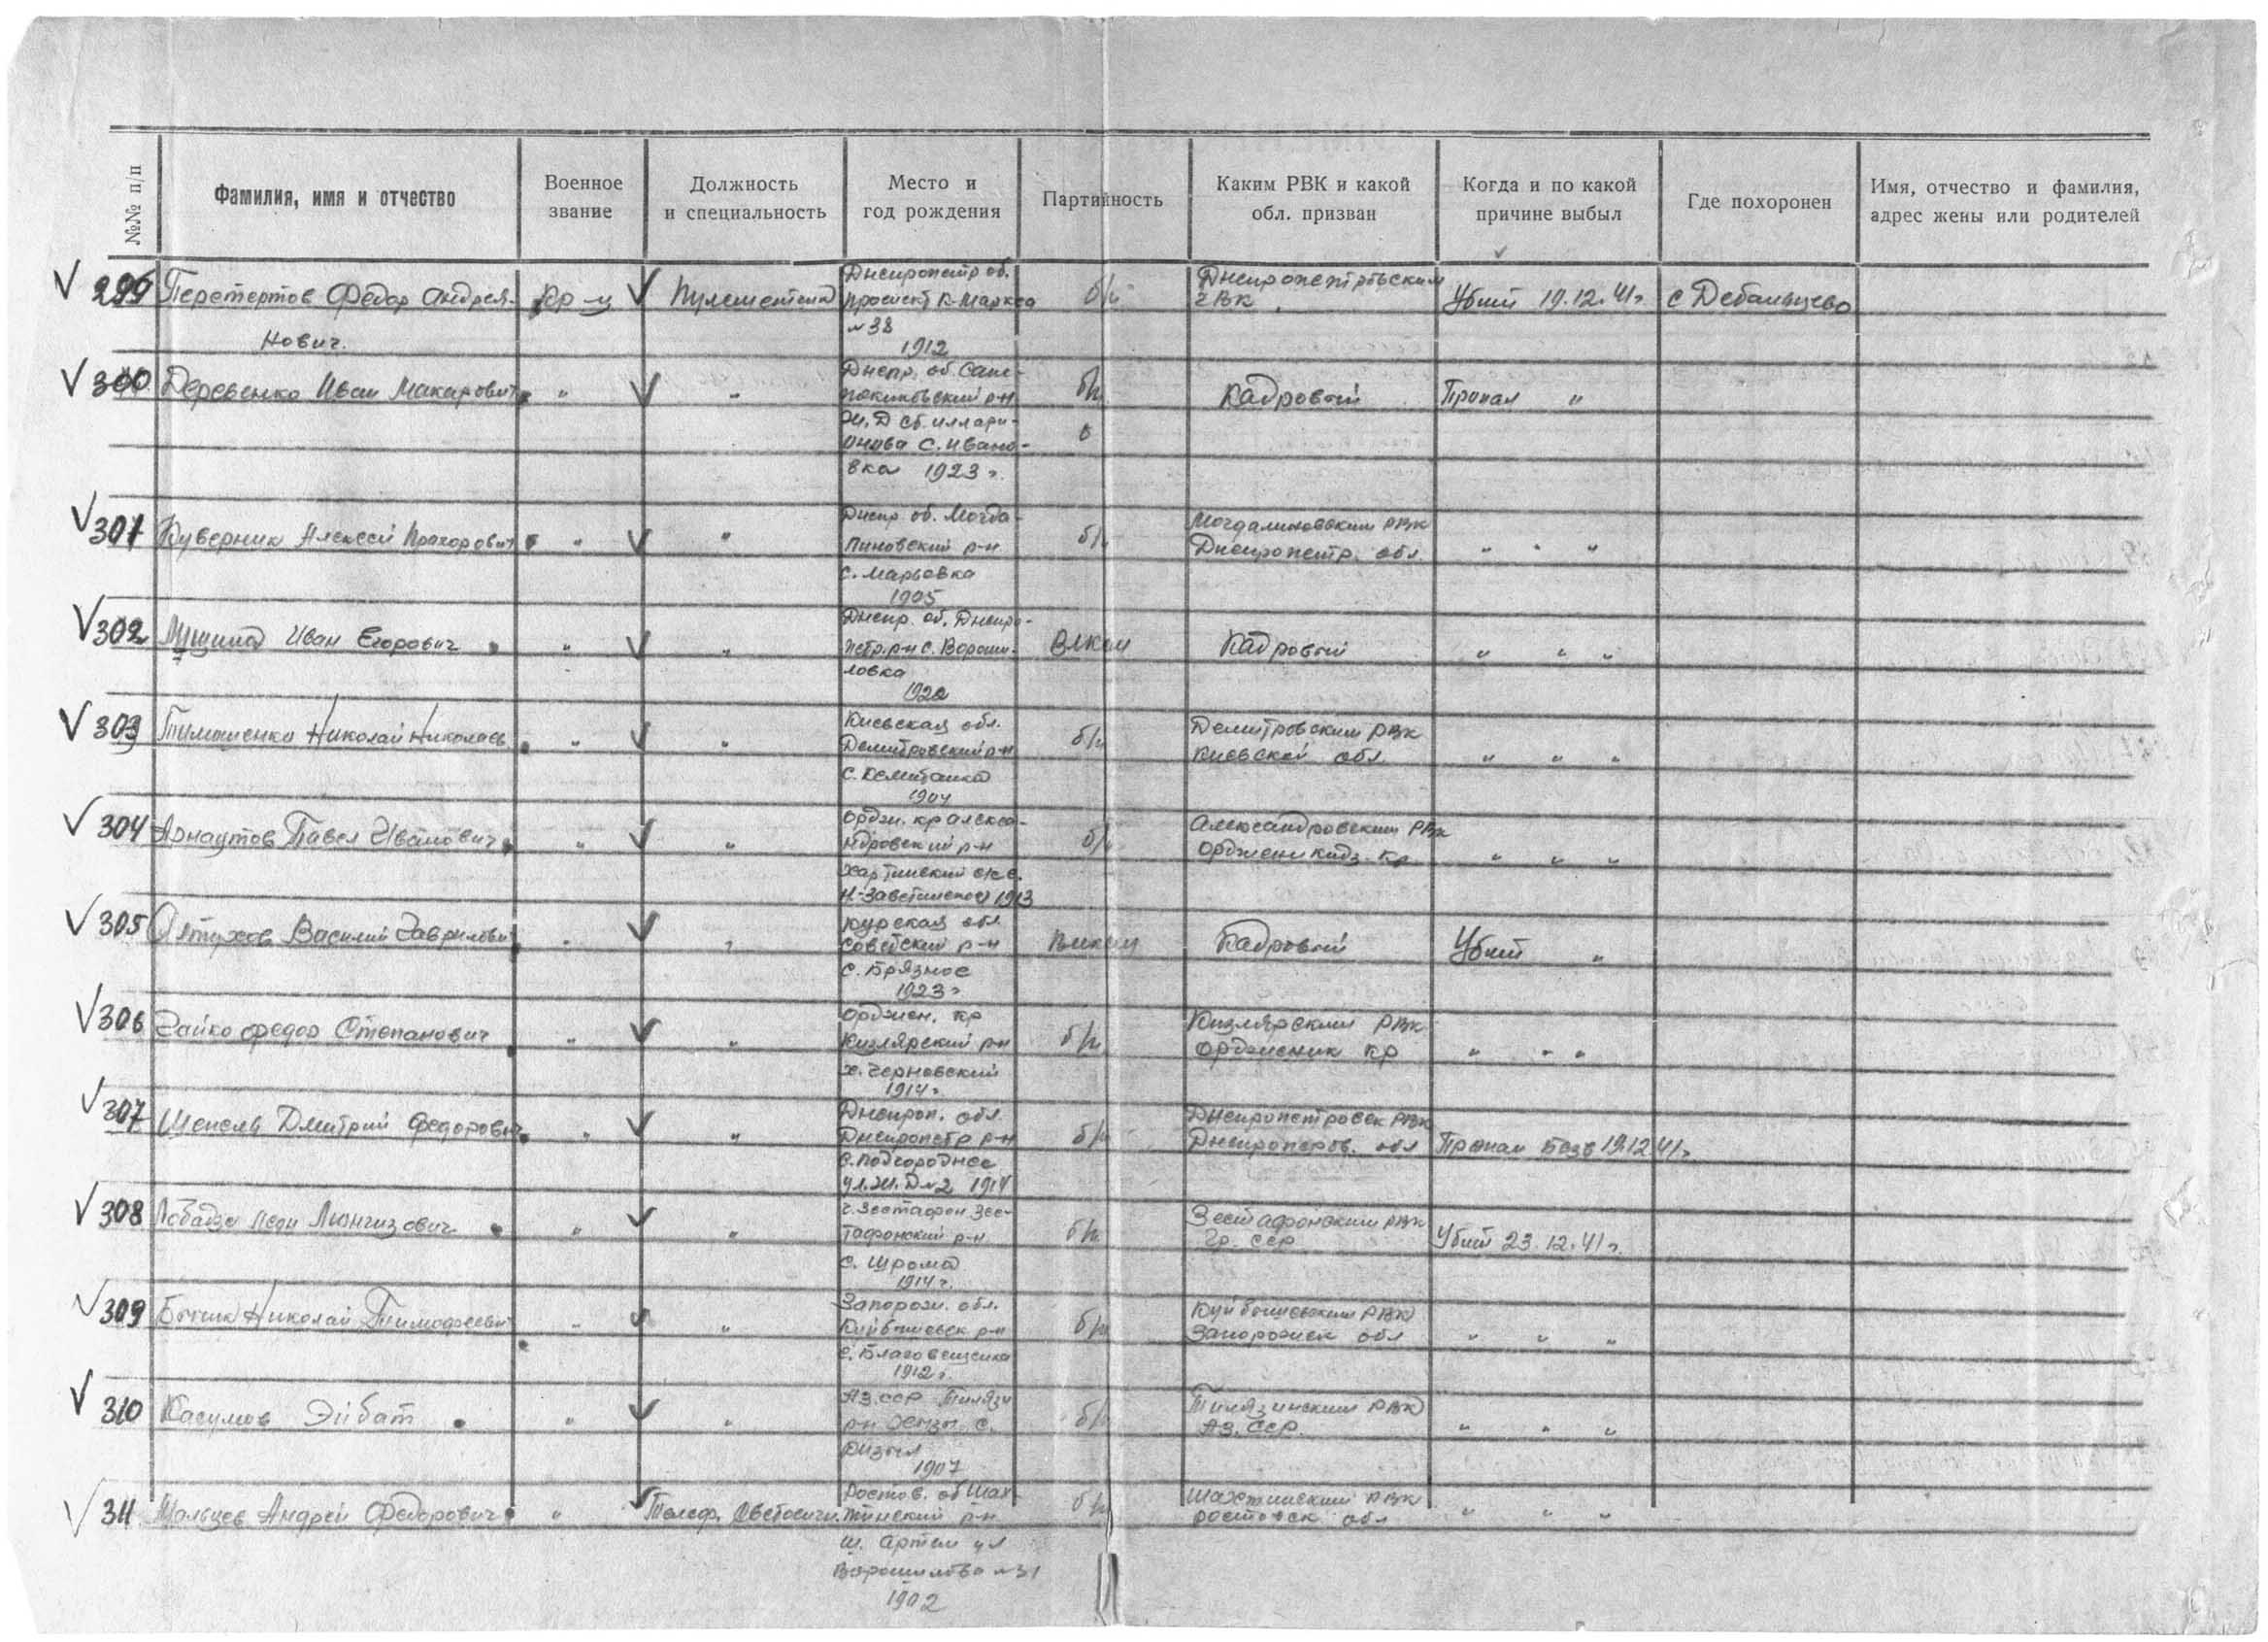 №№ п/п
Фамилия, имя и отчество
Военное
звание
Должность
и специальность
Место и
год рождения
Партийность
Каким РВК и какой
обл. призван
Когда и по какой
причине выбыл
Где похоронен
Имя, отчество и фамилия,
адрес жены или родителей
299 Перетертов Федор Андрея-
нович.
Кр-ц
Днепропетр об.
проспект К-Маркса
№38
1912
б/п
Днепропетровским
ГВК
Убит 19.12.41г.
с Дебальцево
300 Деревенко Иван Макарович
"
"
Днепр. об.
р-н
ж.Д ст. иллари-
онова с. Ивано-
вка 1923 г.
б/п
Кадровый
Пропал "
301 Куверник Алексей Прохорович
"
"
Днепр. об. Могда-
линовский р-н
с. Марьевка
1905
б/п
Могдалиновским РВК
Днепропетр. обл.
" " "
302 Иван Егорович
"
"
Днепр. об. Днепро-
петр. р-н с. Вороши-
ловка
Влксм
Кадровый
" " "
303 Тимошенко Николай Николаев
"
"
Киевская обл.
Демитровский р-н
с.
1904
б/п
Демитровским РВК
Киевской обл.
" " "
304 Арнаутов Павел Иванович
"
"
Ордж. кр Алекса-
ндровский р-н
1913
б/п
Александровским РВК
Орджоникидз. Кр
" " "
305 Алтухов Василий Гаврилови
"
"
Курская обл
советский р-н
с. Грязное
1923г
Кадровый
Убит "
306 Гайко Федор Степанович
"
"
Орджон. кр
Кизлярский р-н
х. Черновский
1914г
б/п
Кизлярским РВК
Орджоник кр
" " "
307 Шепель Дмитрий Федорович
"
"
Днепроп. обл.
Днепропетр р-н
с. Подгороднее
ул. Ж.Д №2 1914
б/п
Днепропетровск РВК
обл
Пропал Безв 19.12.41г.
308 Леди
"
"
г. Зестафон Зес-
тафонский р-н
с. Шрома
1914г.
б/п
Зестафонским РВК
Гр. ССР
Убит 23.12.41г.
309 Николай Тимофееви
"
"
Запорож. обл.
Куйбышевск р-н
с. Благовещенка
1912г.
б/п
Куйбышевским РВК
Запорожск обл
" " "
310 Касумов Эйбат
"
"
Аз.ССР
р-н с.
1907
б/п
РВК
Аз. ССР.
" " "
311 Мальцев Андрей Федорович
"
Телеф.
Ростов. об Шах-
тинский р-н
ш. Артем ул
Ворошилова №31
1902
б/п
Шахтинский РВК
Ростовск обл
" " "